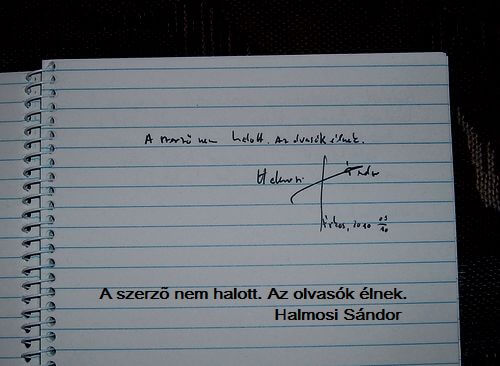 A szerző nem halott. Az olvasók élnek.
Halmosi Sándor
Árkos, 2010 09/10
A szerző nem halott. Az olvasók élnek.
Halmosi Sándor